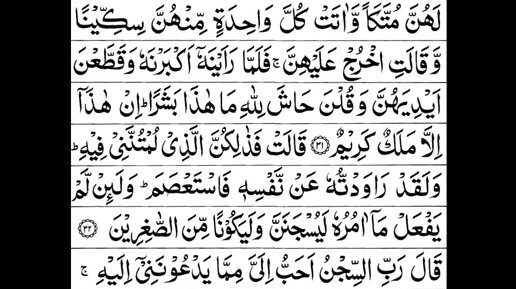 لَهُنَّ مُتَّكَاً وَّاٰتَتْ كُلَّ وَاحِدَةٍ مِّنْهُنَّ سِكِّيْنًا
وَّقَالَتِ اخْرُجْ عَلَيْهِنَّ ۚ فَلَمَّا رَاَيْنَهٗۤ اَكْبَرْنَهٗ وَقَطَّعْنَ
اَيْدِيَهُنَّ وَقُلْنَ حَاشَ لِلّٰهِ مَا هٰذَا بَشَرًا ؕ اِنْ هٰذَاۤ
اِلَّا مَلَكٌ كَرِيْمٌ ﴿۳۱﴾ قَالَتْ فَذٰلِكُنَّ الَّذِيْ لُمْتُنَّنِيْ فِيْهِ ؕ
وَلَقَدْ رَاوَدْتُّهٗ عَنْ نَّفْسِهٖ فَاسْتَعْصَمَ ؕ وَلَئِنْ لَّمْ
يَفْعَلْ مَاۤ اٰمُرُهٗ لَيُسْجَنَنَّ وَلَيَكُوْنًا مِّنَ الصّٰغِرِيْنَ ﴿۳۲﴾
قَالَ رَبِّ السِّجْنُ اَحَبُّ اِلَيَّ مِمَّا يَدْعُوْنَنِيْۤ اِلَيْهِ ۚ